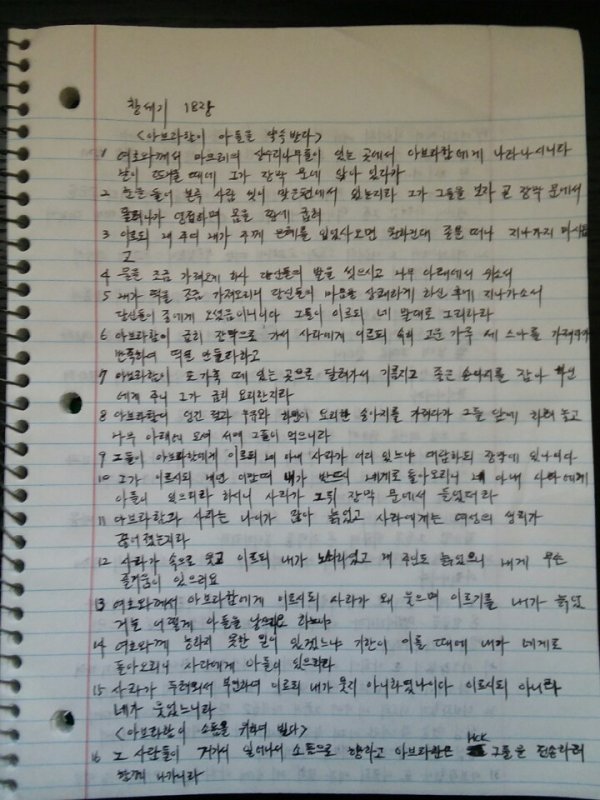 창세기 18장
<아브라함이 아들을 약속 받다>
1 여호와께서 마므레의 상수리나무들이 있는 곳에서 아브라함에게 나타나시니라
날이 뜨거울 때에 그가 장막 문에 앉아 있다가
2 눈을 들어 본즉 사람 셋이 맞은편에 서 있는지라 그가 그들을 보자 곧 장막 문에서
달려나가 영접하며 몸을 땅에 굽혀
3 이르되 내 주여 내가 주께 은혜를 입었사오면 원하건대 종을 떠나 지나가지 마시옵
고
4 물을 조금 가져오게 하사 당신들의 발을 씻으시고 나무 아래에서 쉬소서
5 내가 떡을 조금 가져오리니 당신들의 마음을 상쾌하게 하신 후에 지나가소서
당신들이 종에게 오셨음이니이다 그들이 이르되 네 말대로 그리하라
6 아브라함이 급히 장막으로 가서 사라에게 이르되 속히 고운 가루 세 스아를 가져다가
반죽하여 떡을 만들라하고
7 아브라함이 또 가축 떼 있는 곳으로 달려가서 기름지고 좋은 송아지를 잡아 하인
에게 주니 그가 급히 요리한지라
8 아브라함이 엉긴 젖과 우유와 하인이 요리한 송아지를 가져다가 그들 앞에 차려 놓고
나무 아래에 모셔 서매 그들이 먹으니라
9 그들이 아브라함에게 이르되 네 아내 사라가 어디 있느냐 대답하되 장막에 있나이다
10 그가 이르시되 내년 이맘때 내가 반드시 네게로 돌아오리니 네 아내 사라에게
아들이 있으리라 하시니 사라가 그 뒤 장막 문에서 들었더라
11 아브라함과 사라는 나이가 많아 늙었고 사라에게는 여성의 생리가
끊어졌는지라
12 사라가 속으로 웃고 이르되 내가 노쇠하였고 내 주인도 늙었으니 내게 무슨
즐거움이 있으리요
13 여호와께서 아브라함에게 이르시되 사라가 왜 웃으며 이르기를 내가 늙었
거늘 어떻게 아들을 낳으리요 하느냐
14 여호와께 능하지 못한 일이 있겠느냐 기한이 이를 때에 내가 네게로
돌아오리니 사라에게 아들이 있으리라
15 사라가 두려워서 부인하여 이르되 내가 웃지 아니하였나이다 이르시되 아니라
네가 웃었느니라
<아브라함이 소돔을 위하여 빌다>
16 그 사람들이 거기서 일어나서 소돔으로 향하고 아브라함은 그들을 전송하러
함께 나가니라